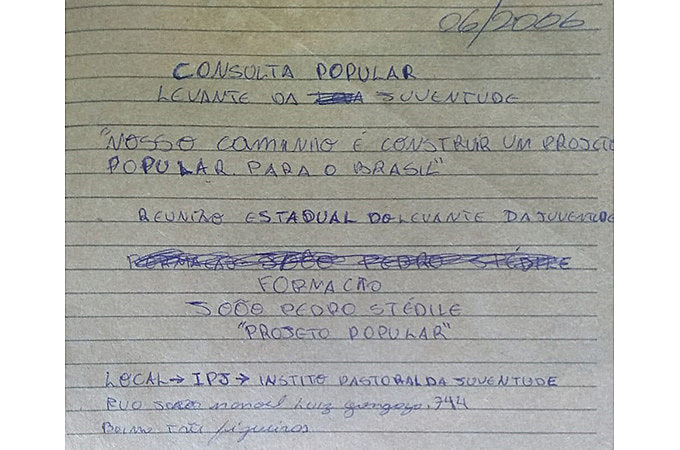 06/2006
CONSULTA POPULAR
LEVANTE DA JUVENTUDE
"NOSSO CAMINHO É CONSTRUIR UM PROJETO
POPULAR PARA O BRASIL"
REUNIÃO ESTADUAL DO LEVANTE DA JUVENTUDE
FORMAÇÃO JOÃO PEDRO STÉDILE
FORMAÇÃO
JOÃO PEDRO STÉDILE
"PROJETO POPULAR"
LOCAL → IPJ → INSTITO PASTORAL DA JUVENTUDE
Rua manoel Luiz 744
Bairro Três figueiras